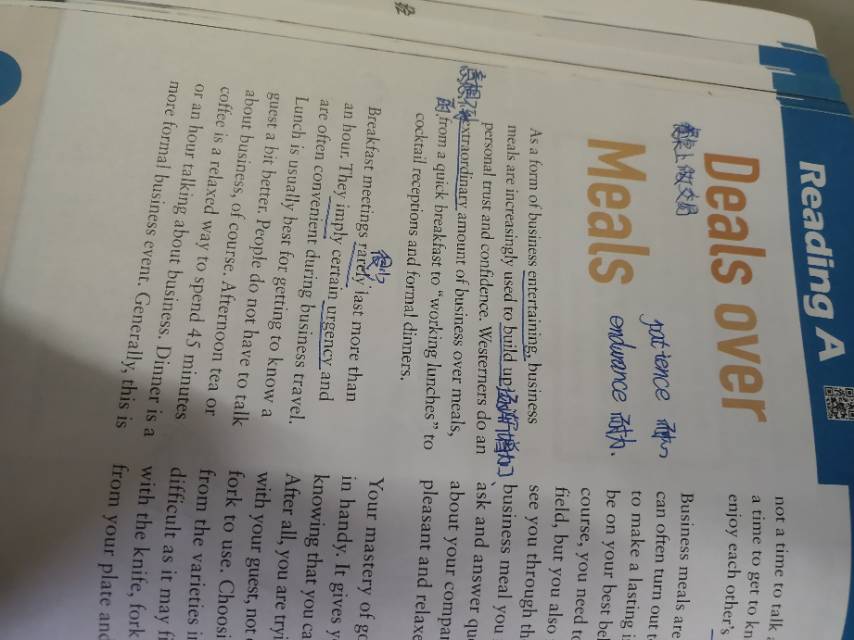 Reading A
Deals over
Meals
餐桌上做交易
patience 耐心
endurance 耐力.
As a form of business entertaining, business
meals are increasingly used to build up 逐渐增加
personal trust and confidence. Westerners do an
意想不到 extraordinary amount of business over meals,
的 from a quick breakfast to “working lunches” to
cocktail receptions and formal dinners.
很少
Breakfast meetings rarely last more than
an hour. They imply certain urgency and
are often convenient during business travel.
Lunch is usually best for getting to know a
guest a bit better. People do not have to talk
about business, of course. Afternoon tea or
coffee is a relaxed way to spend 45 minutes
or an hour talking about business. Dinner is a
more formal business event. Generally, this is
not a time to talk
a time to get to kn
enjoy each other's
Business meals are
can often turn out
to make a lasting i
be on your best bel
course, you need to
field, but you also
see you through th
business meal you
ask and answer qu
about your compa
pleasant and relaxe
Your mastery of go
in handy. It gives y
knowing that you ca
After all, you are tryi
with your guest, not
fork to use. Choosi
from the varieties i
difficult as it may fi
with the knife, fork
from your plate and